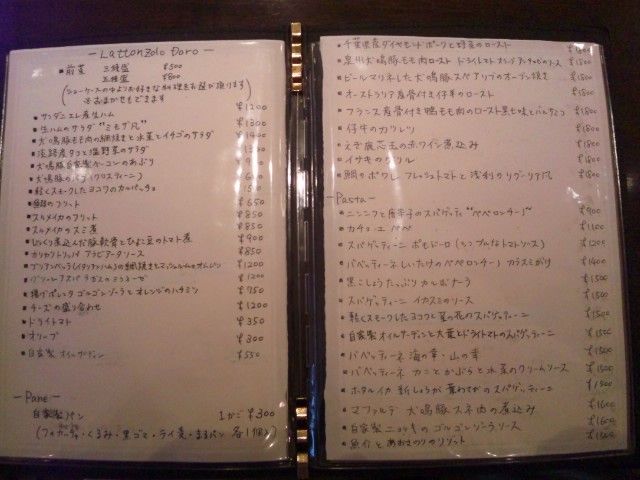 - Lattonzolo Doro -
前菜 三種盛 ¥500
五種盛 ¥800
(ショーケースの中よりお好きな料理をお選び頂けます)
※おまかせもできます
サンダニエレ産生ハム ¥1200
生ハムのサラダ "ミモザ風" ¥1300
犬鳴豚もも肉の網焼きと水菜とイチゴのサラダ ¥1400
淡路産タコと塩野菜のサラダ
犬鳴豚自家製ベーコンのあぶり ¥900
犬鳴豚の (クロスティーニ) ¥650
軽くスモークしたヨコワのカルパッチョ
のフリット ¥650
スルメイカのフリット ¥850
スルメイカのスミ煮 ¥850
じっくり煮込んだ豚軟骨とひよこ豆のトマト煮 ¥900
カリカリトリッパ アラビアータソース ¥850
(イタリアンハム)の網焼きとマッシュルームのオムレツ ¥1200
グリーンアスパラ ¥1200
揚げポレンタ ゴルゴンゾーラとオレンジのハチミツ ¥750
チーズの盛り合わせ ¥1200
ドライトマト ¥350
オリーブ ¥300
自家製 オイルサーディン ¥550
- Pane -
自家製パン 1かご ¥300
(フォカッチャ・くるみ・黒ゴマ・ライ麦・まるパン 各1個)
千葉県産ダイヤモンドポークと野菜のロースト ¥1800
泉州犬鳴豚もも肉ロースト ドライトマト ソース ¥1800
ビールマリネした犬鳴豚スペアリブのオーブン焼き ¥1800
オーストラリア産骨付き仔羊のロースト ¥1800
フランス産骨付き鴨もも肉のロースト 黒七味とバルサミコ ¥1800
仔牛のカツレツ ¥1800
の赤ワイン煮込み ¥1800
イサキのグリル ¥1800
鯛のポワレ フレッシュトマトと浅利のリグーリア風 ¥1800
- Pasta -
ニンニクと唐辛子のスパゲッティ "ペペロンチーノ" ¥900
カチョ・エ・ペペ ¥1100
スパゲッティーニ ポモドーロ (シンプルなトマトソース) ¥1200
バベッティーネ しいたけのペペロンチーノ カラスミがけ ¥1400
黒こしょうたっぷり カルボナーラ ¥1500
スパゲッティーニ イカスミのソース ¥1500
軽くスモークしたヨコワと菜の花のスパゲッティーニ ¥1500
自家製オイルサーディンと大葉とドライトマトのスパゲッティーニ ¥1500
バベッティーネ 海の幸・山の幸 ¥1500
バベッティーネ カニとかぶらと水菜のクリームソース ¥1500
ホタルイカ 新しょうが 葉わさびのスパゲッティーニ ¥1500
マファルデ 犬鳴豚スネ肉の煮込み ¥1600
自家製ニョッキのゴルゴンゾーラソース ¥1600
魚介とあおさのりのリゾット ¥1500